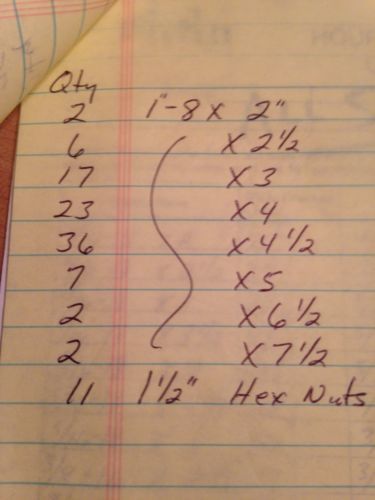 Qty
2 1"-8 x 2"
6 x 2 1/2
17 x 3
23 x 4
36 x 4 1/2
7 x 5
2 x 6 1/2
2 x 7 1/2
11 1 1/2" Hex Nuts